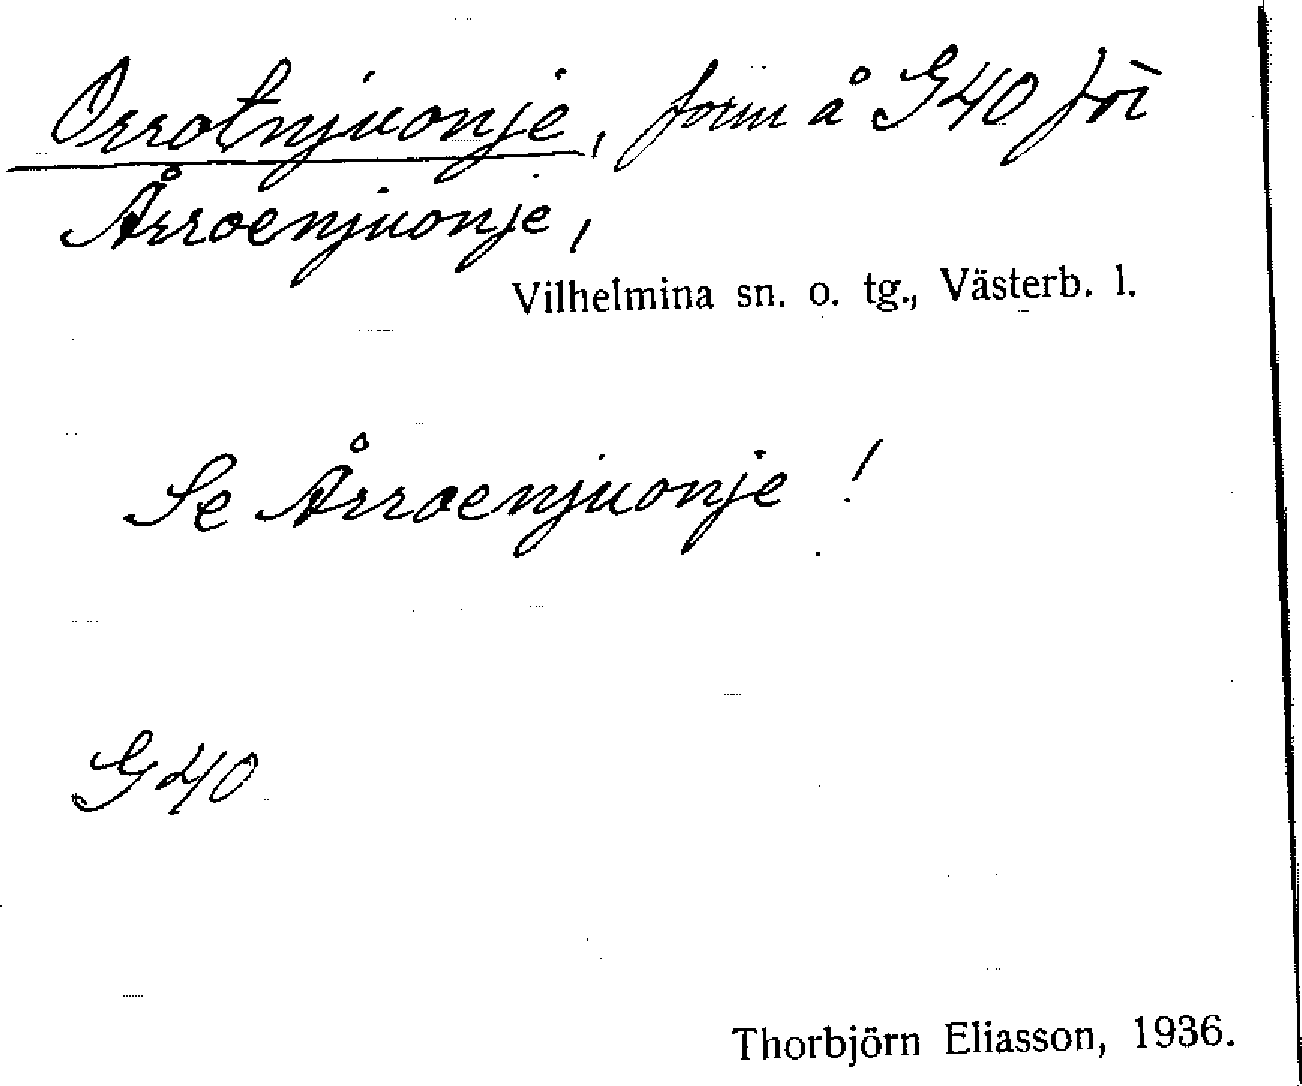 Orrotnjuonje, form å G40 för
Årroenjuonje,
Vilhelmina sn. o. tg., Västerb. l.
Se Årroenjuonje!
G40
Thorbjörn Eliasson, 1936.